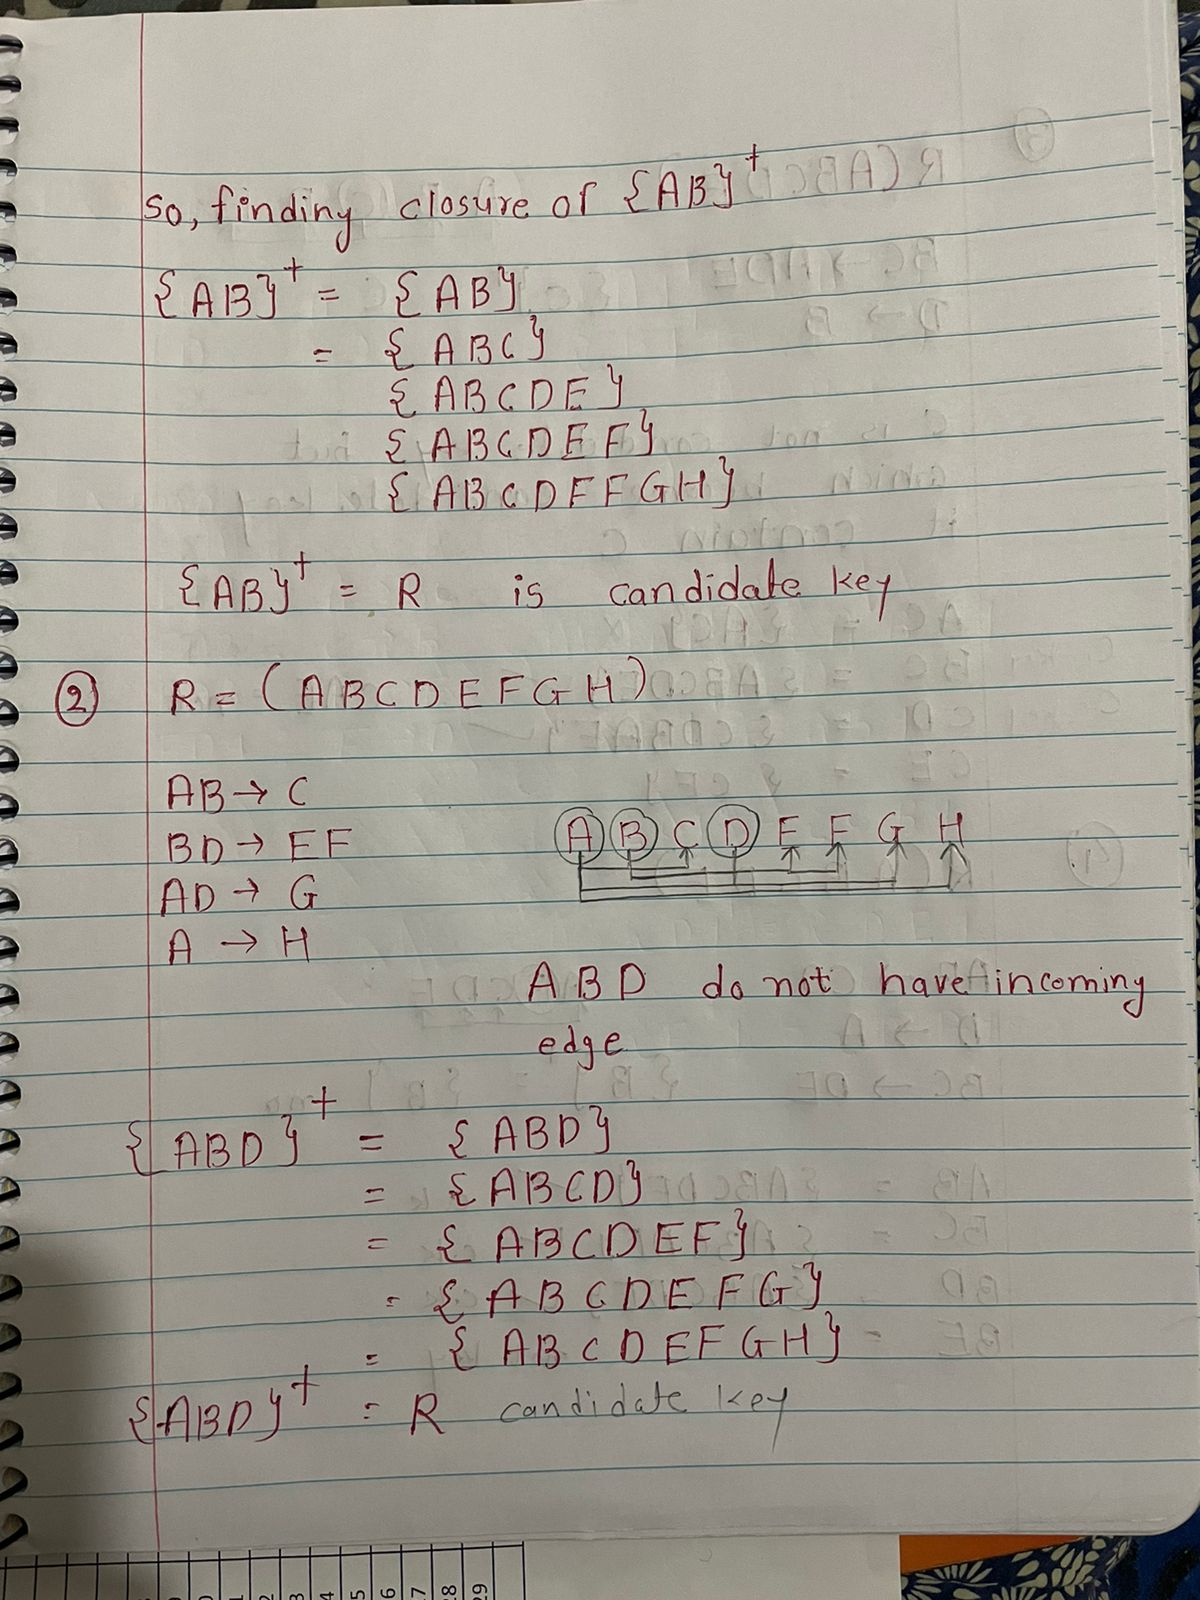 So, finding closure of {AB}⁺
{AB}⁺ = {AB}
= {ABC}
{ABCDE}
{ABCDEF}
{ABCDEFGH}
{AB}⁺ = R is candidate key
② R = (ABCDEFGH)
AB → C
BD → EF
AD → G
A → H
A B C D E F G H
ABD do not have incoming
edge
{ABD}⁺ = {ABD}
= {ABCD}
= {ABCDEF}
= {ABCDEFG}
= {ABCDEFGH}
{ABD}⁺ = R candidate key
29